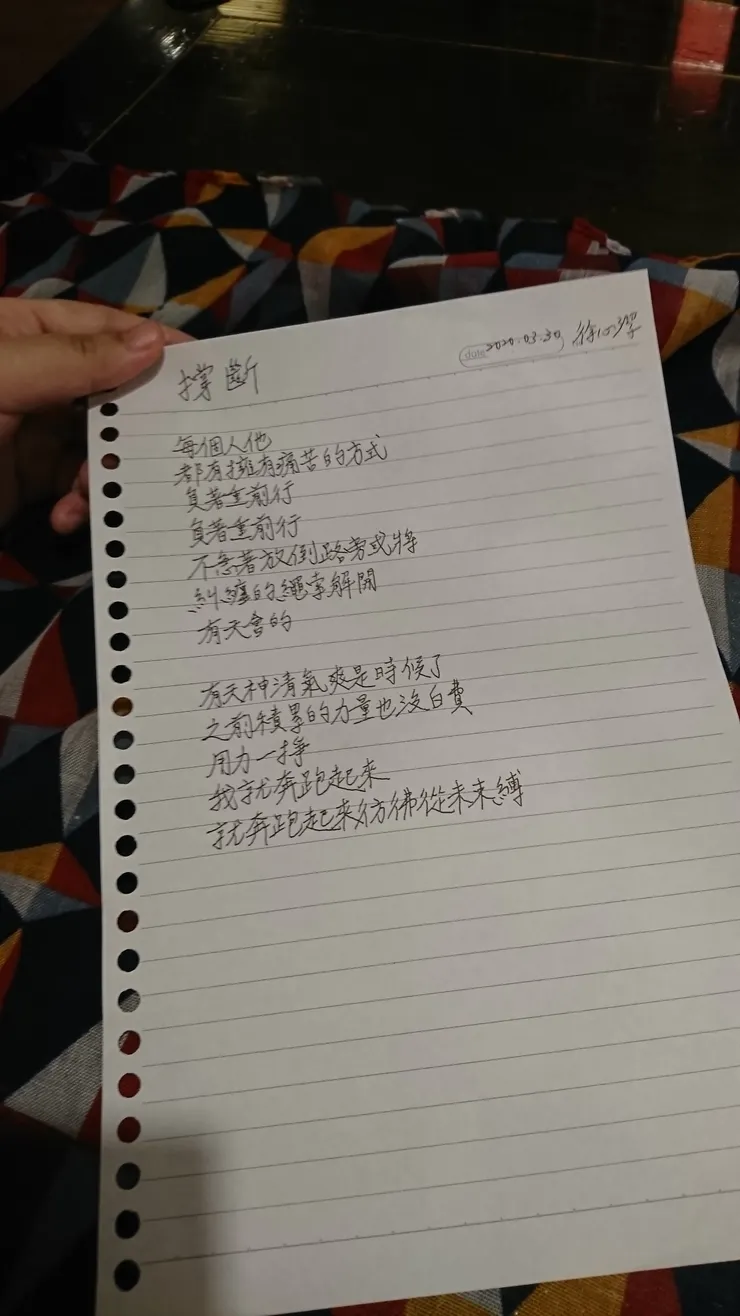 date 2020.03.30 徐心
撐斷
每個人他
都有擁有痛苦的方式
負著重前行
負著重前行
不急著放倒路旁或將
糾纏的繩索解開
有天會的
有天神清氣爽是時候了
之前積累的力量也沒白費
用力一掙
我就奔跑起來
就奔跑起來彷彿從未束縛